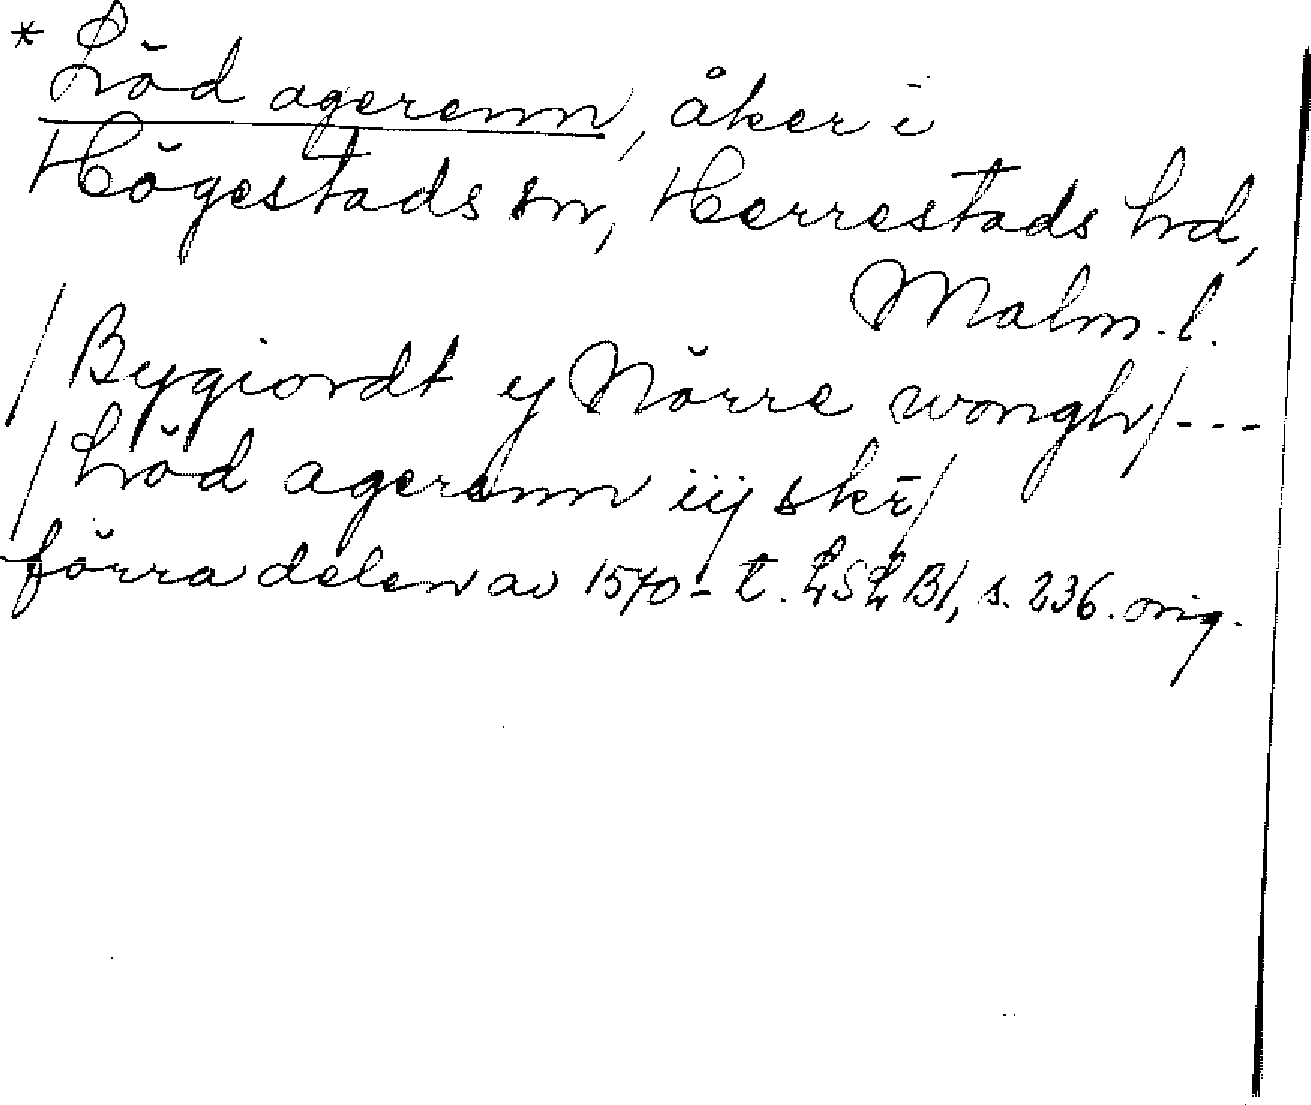 * Löd agerenn, åker i
Högestads sn, Herrestads hd,
Malm. l.
/Bygiordt ij Nörre wongh/---
/Löd agerenn iij skr/
förra delen av 1570-t. LSLB1, s. 236. orig.